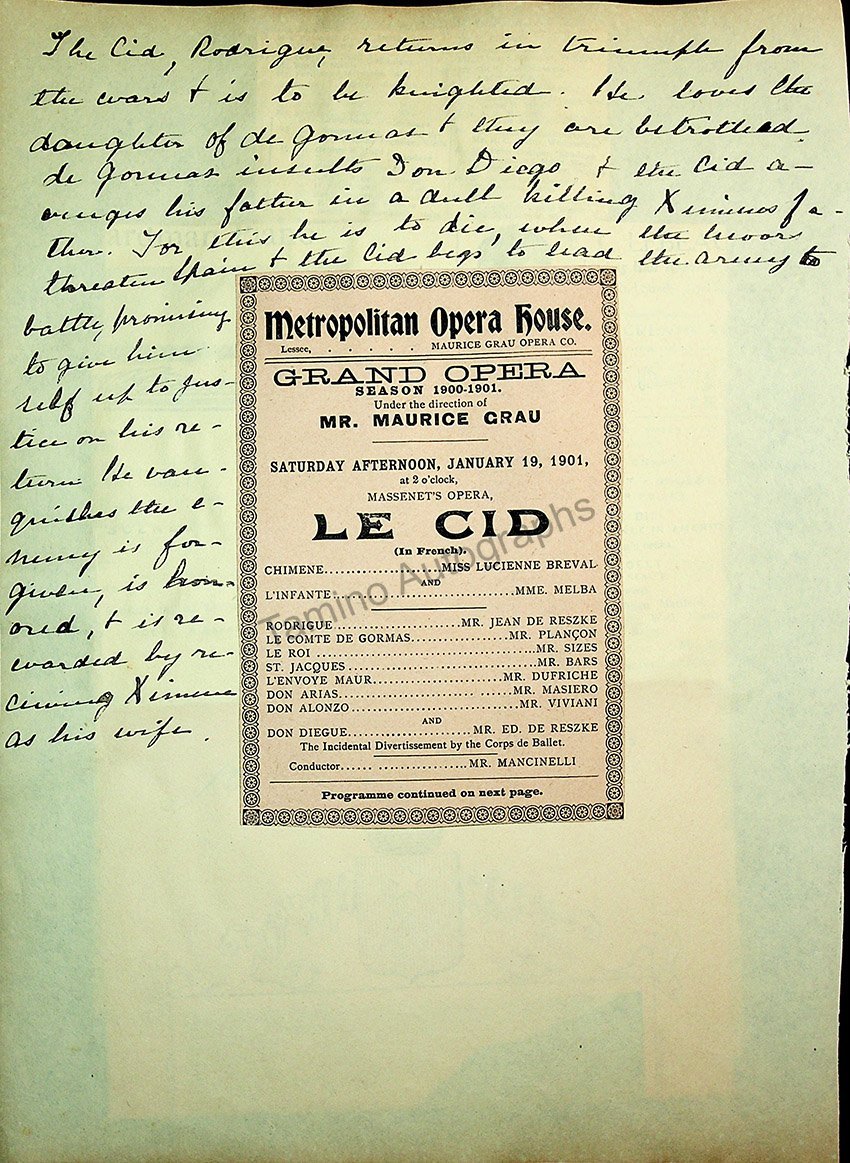 The Cid, Rodrigue, returns in triumph from
the wars & is to be knighted. He loves the
daughter of de Gormas & they are betrothead.
de Gormas insults Don Diego & the Cid a-
venges his father in a dull killing Ximenes fa-
ther. For this he is to die, when the moors
threaten Spain & the Cid begs to lead the army to
battle, promising
to give him
self up to jus-
tice on his re-
turn He van-
quishes the e-
nemy is for-
given, is hon-
ored, & is re-
warded by re-
ceiving Ximene
as his wife.
Metropolitan Opera House.
Lessee, . . . . . . MAURICE GRAU OPERA CO.
GRAND OPERA
SEASON 1900-1901.
Under the direction of
MR. MAURICE GRAU
SATURDAY AFTERNOON, JANUARY 19, 1901,
at 2 o'clock,
MASSENET'S OPERA,
LE CID
(In French).
CHIMENE......................MISS LUCIENNE BREVAL
AND
L'INFANTE..............................MME. MELBA
RODRIGUE......................MR. JEAN DE RESZKE
LE COMTE DE GORMAS................MR. PLANÇON
LE ROI ....................................MR. SIZES
ST. JACQUES................................MR. BARS
L'ENVOYE MAUR......................MR. DUFRICHE
DON ARIAS.................... ......MR. MASIERO
DON ALONZO............................MR. VIVIANI
AND
DON DIEGUE......................MR. ED. DE RESZKE
The Incidental Divertissement by the Corps de Ballet.
Conductor...... ................MR. MANCINELLI
Programme continued on next page.
Tamino Autographs